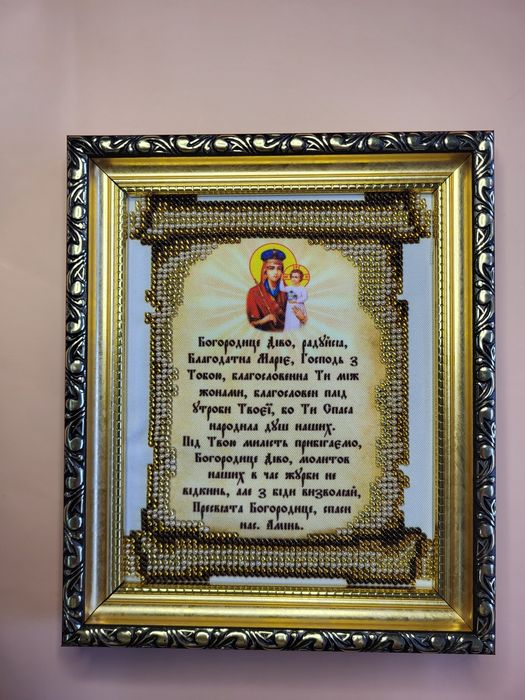 Богородице Діво, радуйся,
Благодатна Маріє, Господь з
Тобою, благословенна Ти між
жонами, благословен плід
утроби Твоєї, бо Ти Спаса
народила душ наших.
Під Твою милість прибігаємо,
Богородице Діво, молитов
наших в час журби не
відкинь, але з біди визволяй,
Пресвята Богородице, спаси
нас. Амінь.